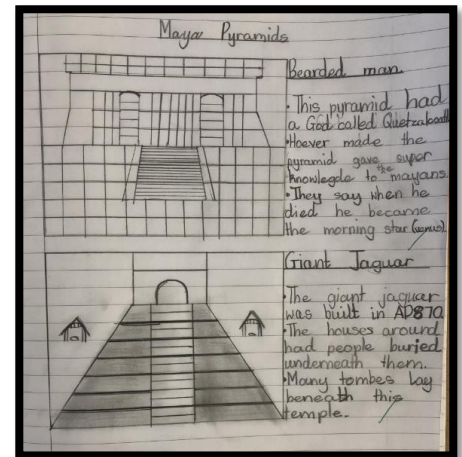 Maya Pyramids
Bearded man
• This pyramid had
a God called Quetzalcoatl
• Hoever made the
pyramid gave super
knowlegde to the mayans.
• They say when he
died he became
the morning star (venus).
Giant Jaguar
• The giant jaguar
was built in AD870
• The houses around
had people buried
underneath them.
• Many tombes lay
beneath this
temple.